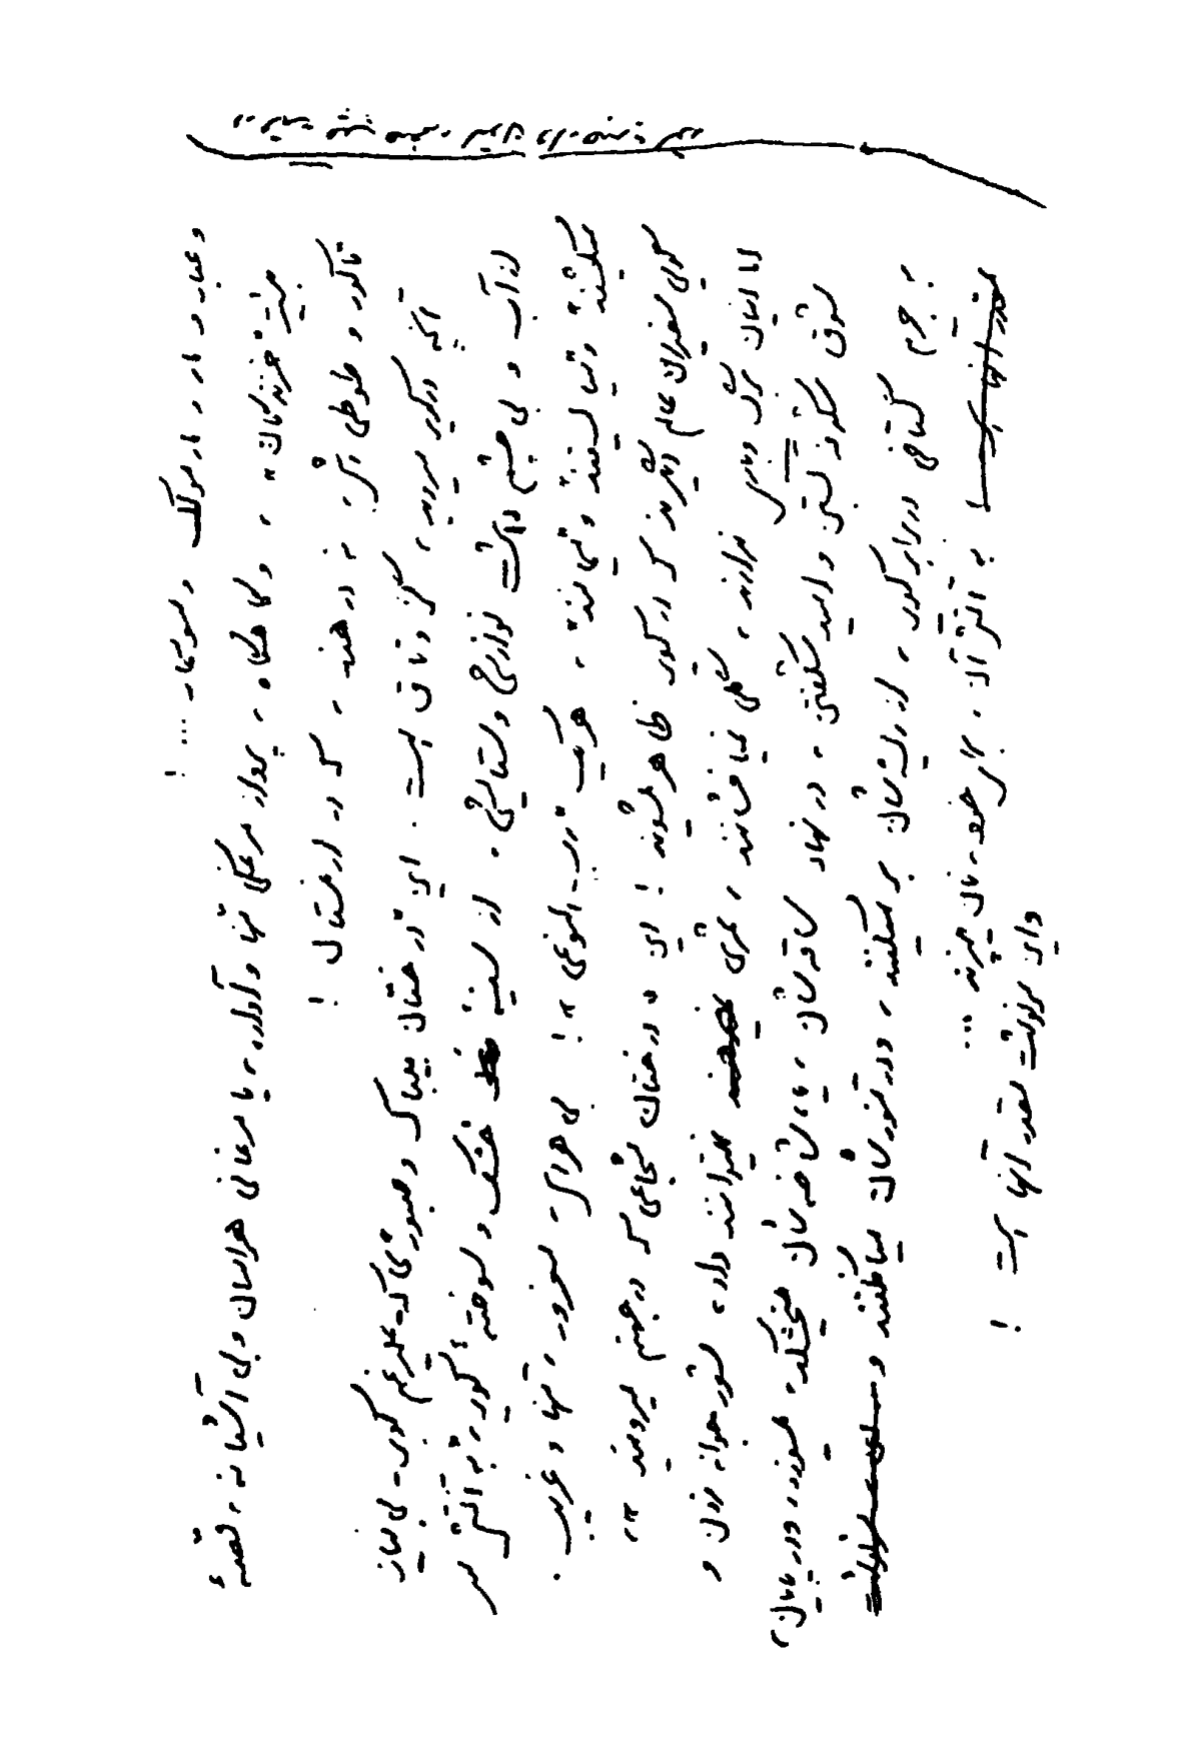 و غبار و مار و مارمولک و سوسمار ... !
"خزندگان"، و گاهگاه، پرواز مرغکی تنها و آواره، یا مرغانی هراسان و بی آشیانه، قصهٔ
تاگور و طوطی اش، نه در هند، که در !
آنچه در کویر میروید، گز و تاق است. این درختان بیباک و صبوری که علیرغم کویر، بی نیاز
از آب و بی چشم داشت نوازشی و ستایشی، از سینهٔ خشک و سوختهٔ کویر، به آتش سر
میکشند و می ایستند و می مانند، هر یک رب النوعی! بی هراس، مغرور، تنها و غریب.
گویی سفیران عالم دیگرند که در کویر ظاهر میشوند! این "درختان شجاعی که در جهنم میرویند"،
اما اینان برگ و باری ندارند، گلی نمیافشانند، ثمری نمیتوانند داد، شور جوانه زدن و
شوق شکوفه بستن و امید شکفتن، در نهاد ساقه شان، یا، شاخه شان میخشکد، میسوزد و در پایان،
به جرم گستاخی در برابر کویر، از ریشه شان بر میکنند، و در تنورشان میافکنند و
به آتش آن، برای خود، نان میپزند ...
و این سرنوشت مقدر آنها است !